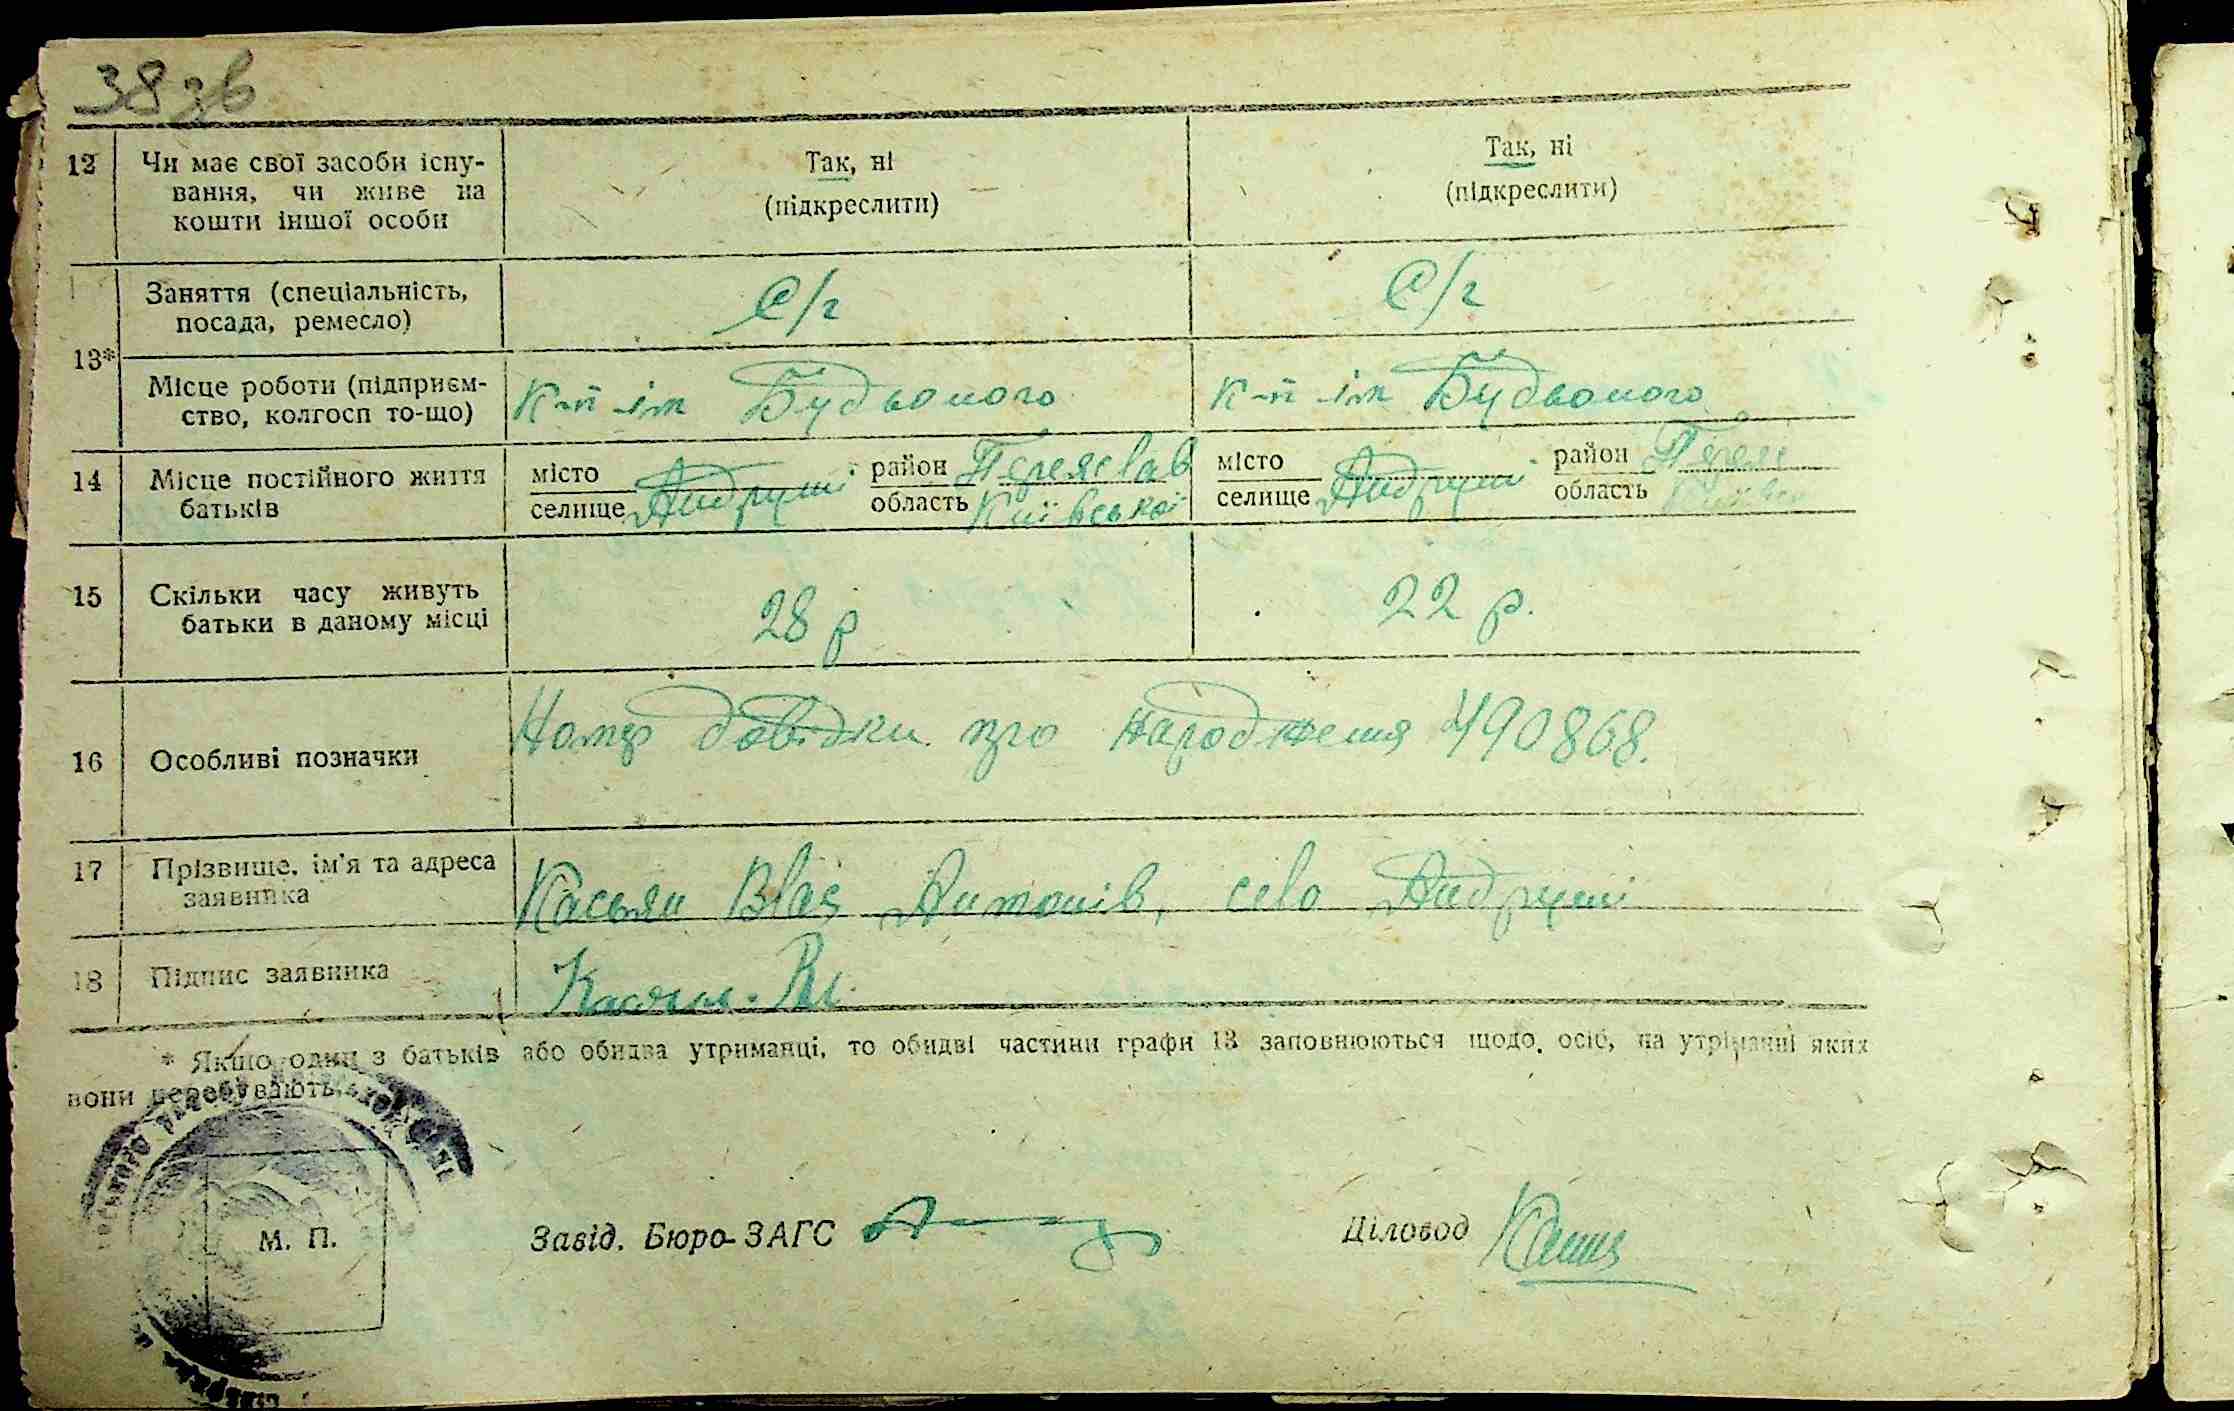 38 зв
12 Чи має свої засоби існу- Так, ні Так, ні
вання, чи живе на (підкреслити) (підкреслити)
кошти іншої особи
Заняття (спеціальність, С/г С/г
посада, ремесло)
13*
Місце роботи (підприєм- К-п ім Будьоного К-п ім Будьоного
ство, колгосп то-що)
14 Місце постійного життя місто район Переяслав місто район Переяс
батьків селище Андруші область Київської селище Андруші область
15 Скільки часу живуть 28 р 22 р.
батьки в даному місці
16 Особливі позначки Номер довідки про народження 490868.
17 Прізвище, ім'я та адреса Касьян Влас Антонів, село Андруші
заявника
18 Підпис заявника Касян. Вл.
* Якщо один з батьків або обидва утриманці, то обидві частини графи 13 заповнюються щодо осіб, на утріманні яких
вони перебувають.
М. П.
Завід. Бюро ЗАГС Діловод